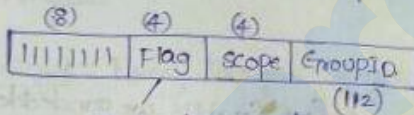 (8) (4) (4)
11111111 Flag scope GroupID
(112)